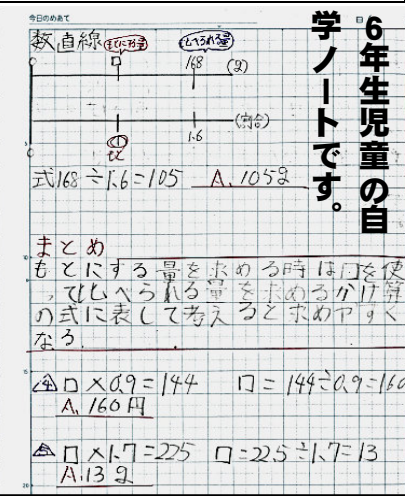 6年生児童の自
学ノートです。
今日のめあて
数直線 もとにする量 くらべられる量
□ 168 (g)
① 1.6 (割合)
もと
式168÷1.6=105 A. 105g
まとめ
もとにする量を求める時は□を使
って比べられる量を求めるかけ算
の式に表して考えると求めやすく
なる。
④ □×0.9=144 □=144÷0.9=160
A. 160円
⑤ □×1.7=225 □=22.5÷1.7=13
A. 13g